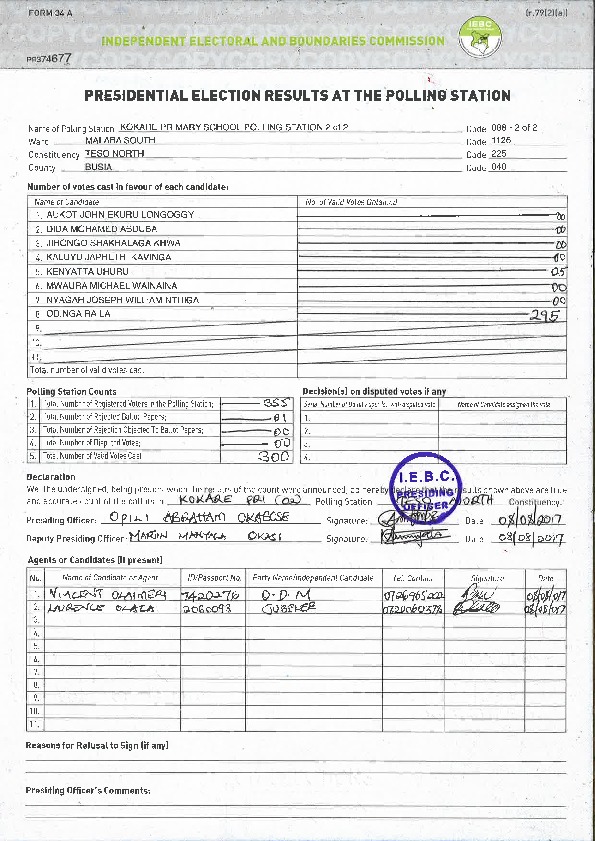 FORM 34 A
(r.79(2)(a))
INDEPENDENT ELECTORAL AND BOUNDARIES COMMISSION
IEBC
PR374677
PRESIDENTIAL ELECTION RESULTS AT THE POLLING STATION
Name of Polling Station KOKARE PRIMARY SCHOOL POLLING STATION 2 of 2 Code 088 - 2 of 2
Ward MALABA SOUTH Code 1126
Constituency TESO NORTH Code 225
County BUSIA Code 040
Number of votes cast in favour of each candidate:
Name of Candidate No. of Valid Votes Obtained
1. AUKOT JOHN EKURU LONGOGGY 00
2. DIDA MOHAMED ABDUBA 00
3. JIRONGO SHAKHALAGA KHWA 00
4. KALUYU JAPHETH KAVINGA 00
5. KENYATTA UHURU 05
6. MWAURA MICHAEL WAINAINA 00
7. NYAGAH JOSEPH WILLIAM NTHIGA 00
8. ODINGA RAILA 295
9.
10.
11.
Total number of valid votes cast
Polling Station Counts
1. Total Number of Registered Voters in the Polling Station; 355
2. Total Number of Rejected Ballot Papers; 01
3. Total Number of Rejection Objected To Ballot Papers; 00
4. Total Number of Disputed Votes; 00
5. Total Number of Valid Votes Cast 300
Decision(s) on disputed votes if any
Serial Number of Ballot paper(s) with disputed vote Name of Candidate assigned the vote
1.
2.
3.
4.
I.E.B.C.
PRESIDING
OFFICER
Declaration
We the undersigned, being present when the results of the count were announced, do hereby declare that the results shown above are true
and accurate count of the ballots in KOKARE PRI (02) Polling Station TESO NORTH Constituency.
Presiding Officer: ABRAHAM Signature: Date 08/08/2017
Deputy Presiding Officer: Signature: Date 08/08/2017
Agents or Candidates (if present)
No. Name of Candidate or Agent ID/Passport No. Party Name/Independent Candidate Tel. Contact Signature Date
1. VINCENT 7420276 08/08/017
2. LAURENCE JUBELEE 0720060376 08/08/017
3.
4.
5.
6.
7.
8.
9.
10.
11.
Reasons for Refusal to Sign (if any)
Presiding Officer's Comments: